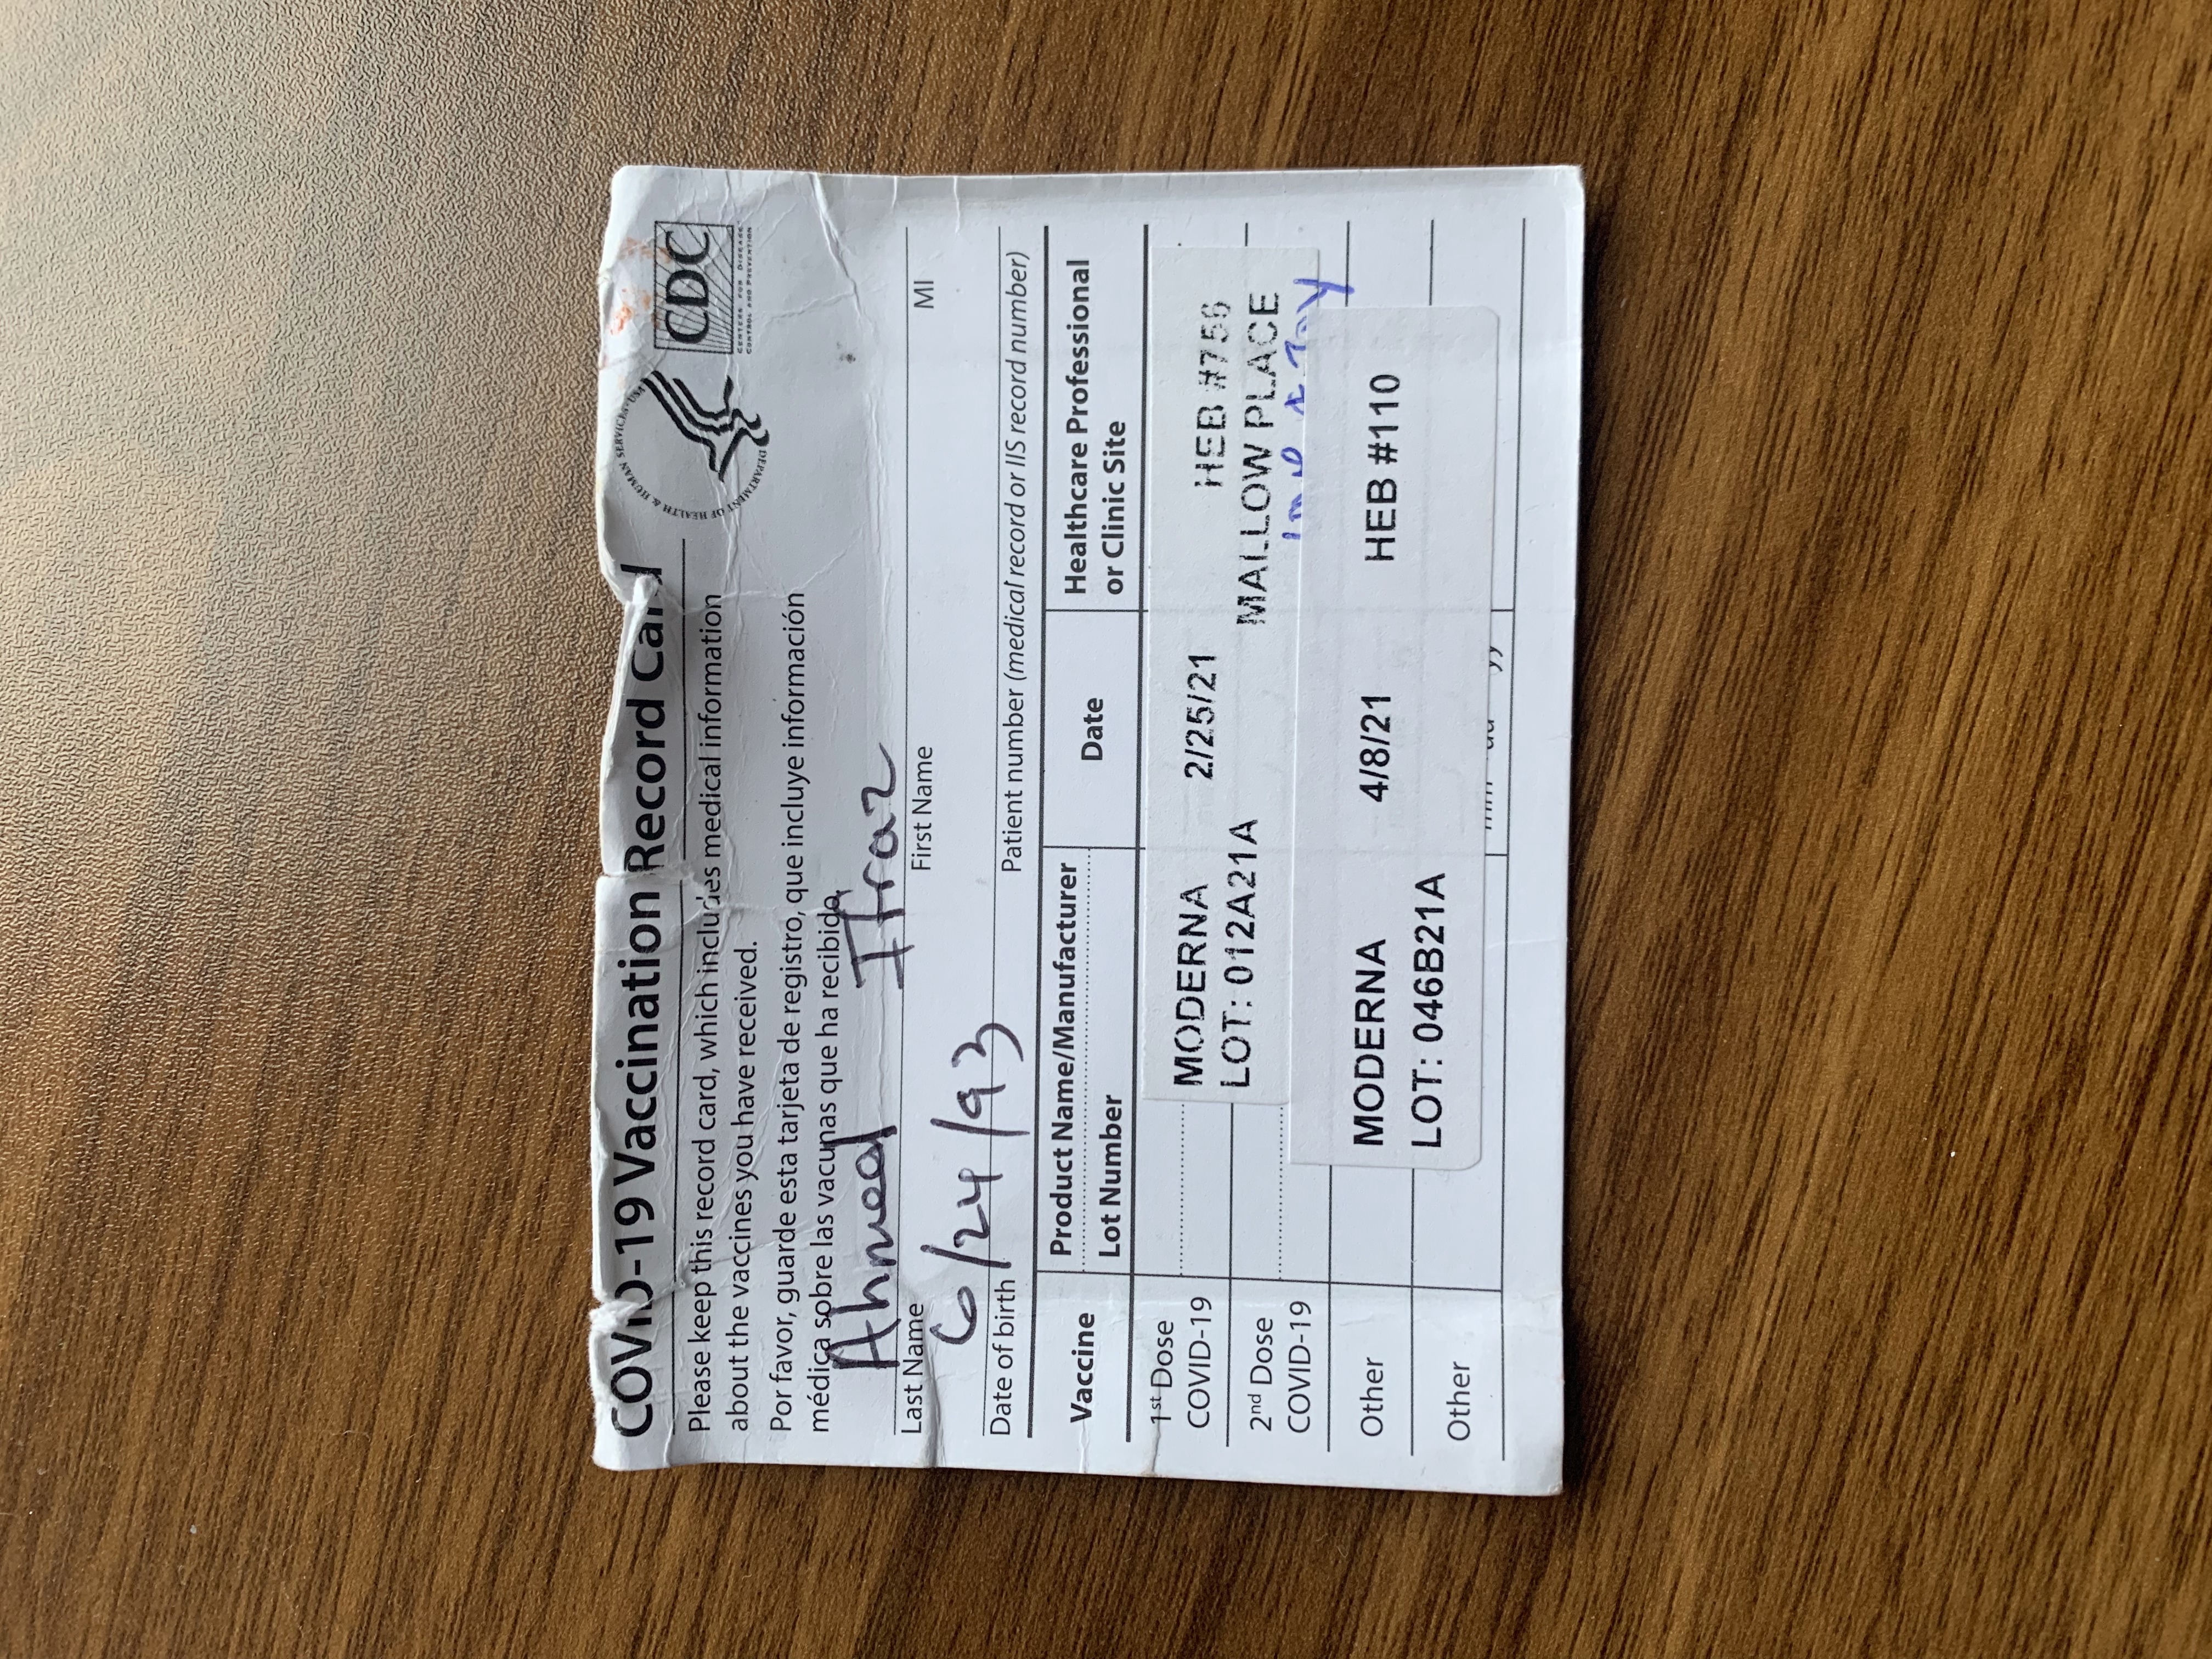 COVID-19 Vaccination Record Card
Please keep this record card, which includes medical information
about the vaccines you have received.
Por favor, guarde esta tarjeta de registro, que incluye información
médica sobre las vacunas que ha recibido.
DEPARTMENT OF HEALTH & HUMAN SERVICES • USA
CDC
CENTERS FOR DISEASE
CONTROL AND PREVENTION
Ahmed Ifraz
Last Name First Name MI
6/24/93
Date of birth Patient number (medical record or IIS record number)
Vaccine Product Name/Manufacturer Date Healthcare Professional
Lot Number or Clinic Site
1st Dose
COVID-19
MODERNA 2/25/21 HEB #756
LOT: 012A21A MALLOW PLACE
2nd Dose
COVID-19
Other
MODERNA 4/8/21 HEB #110
LOT: 046B21A
Other
mm dd yy